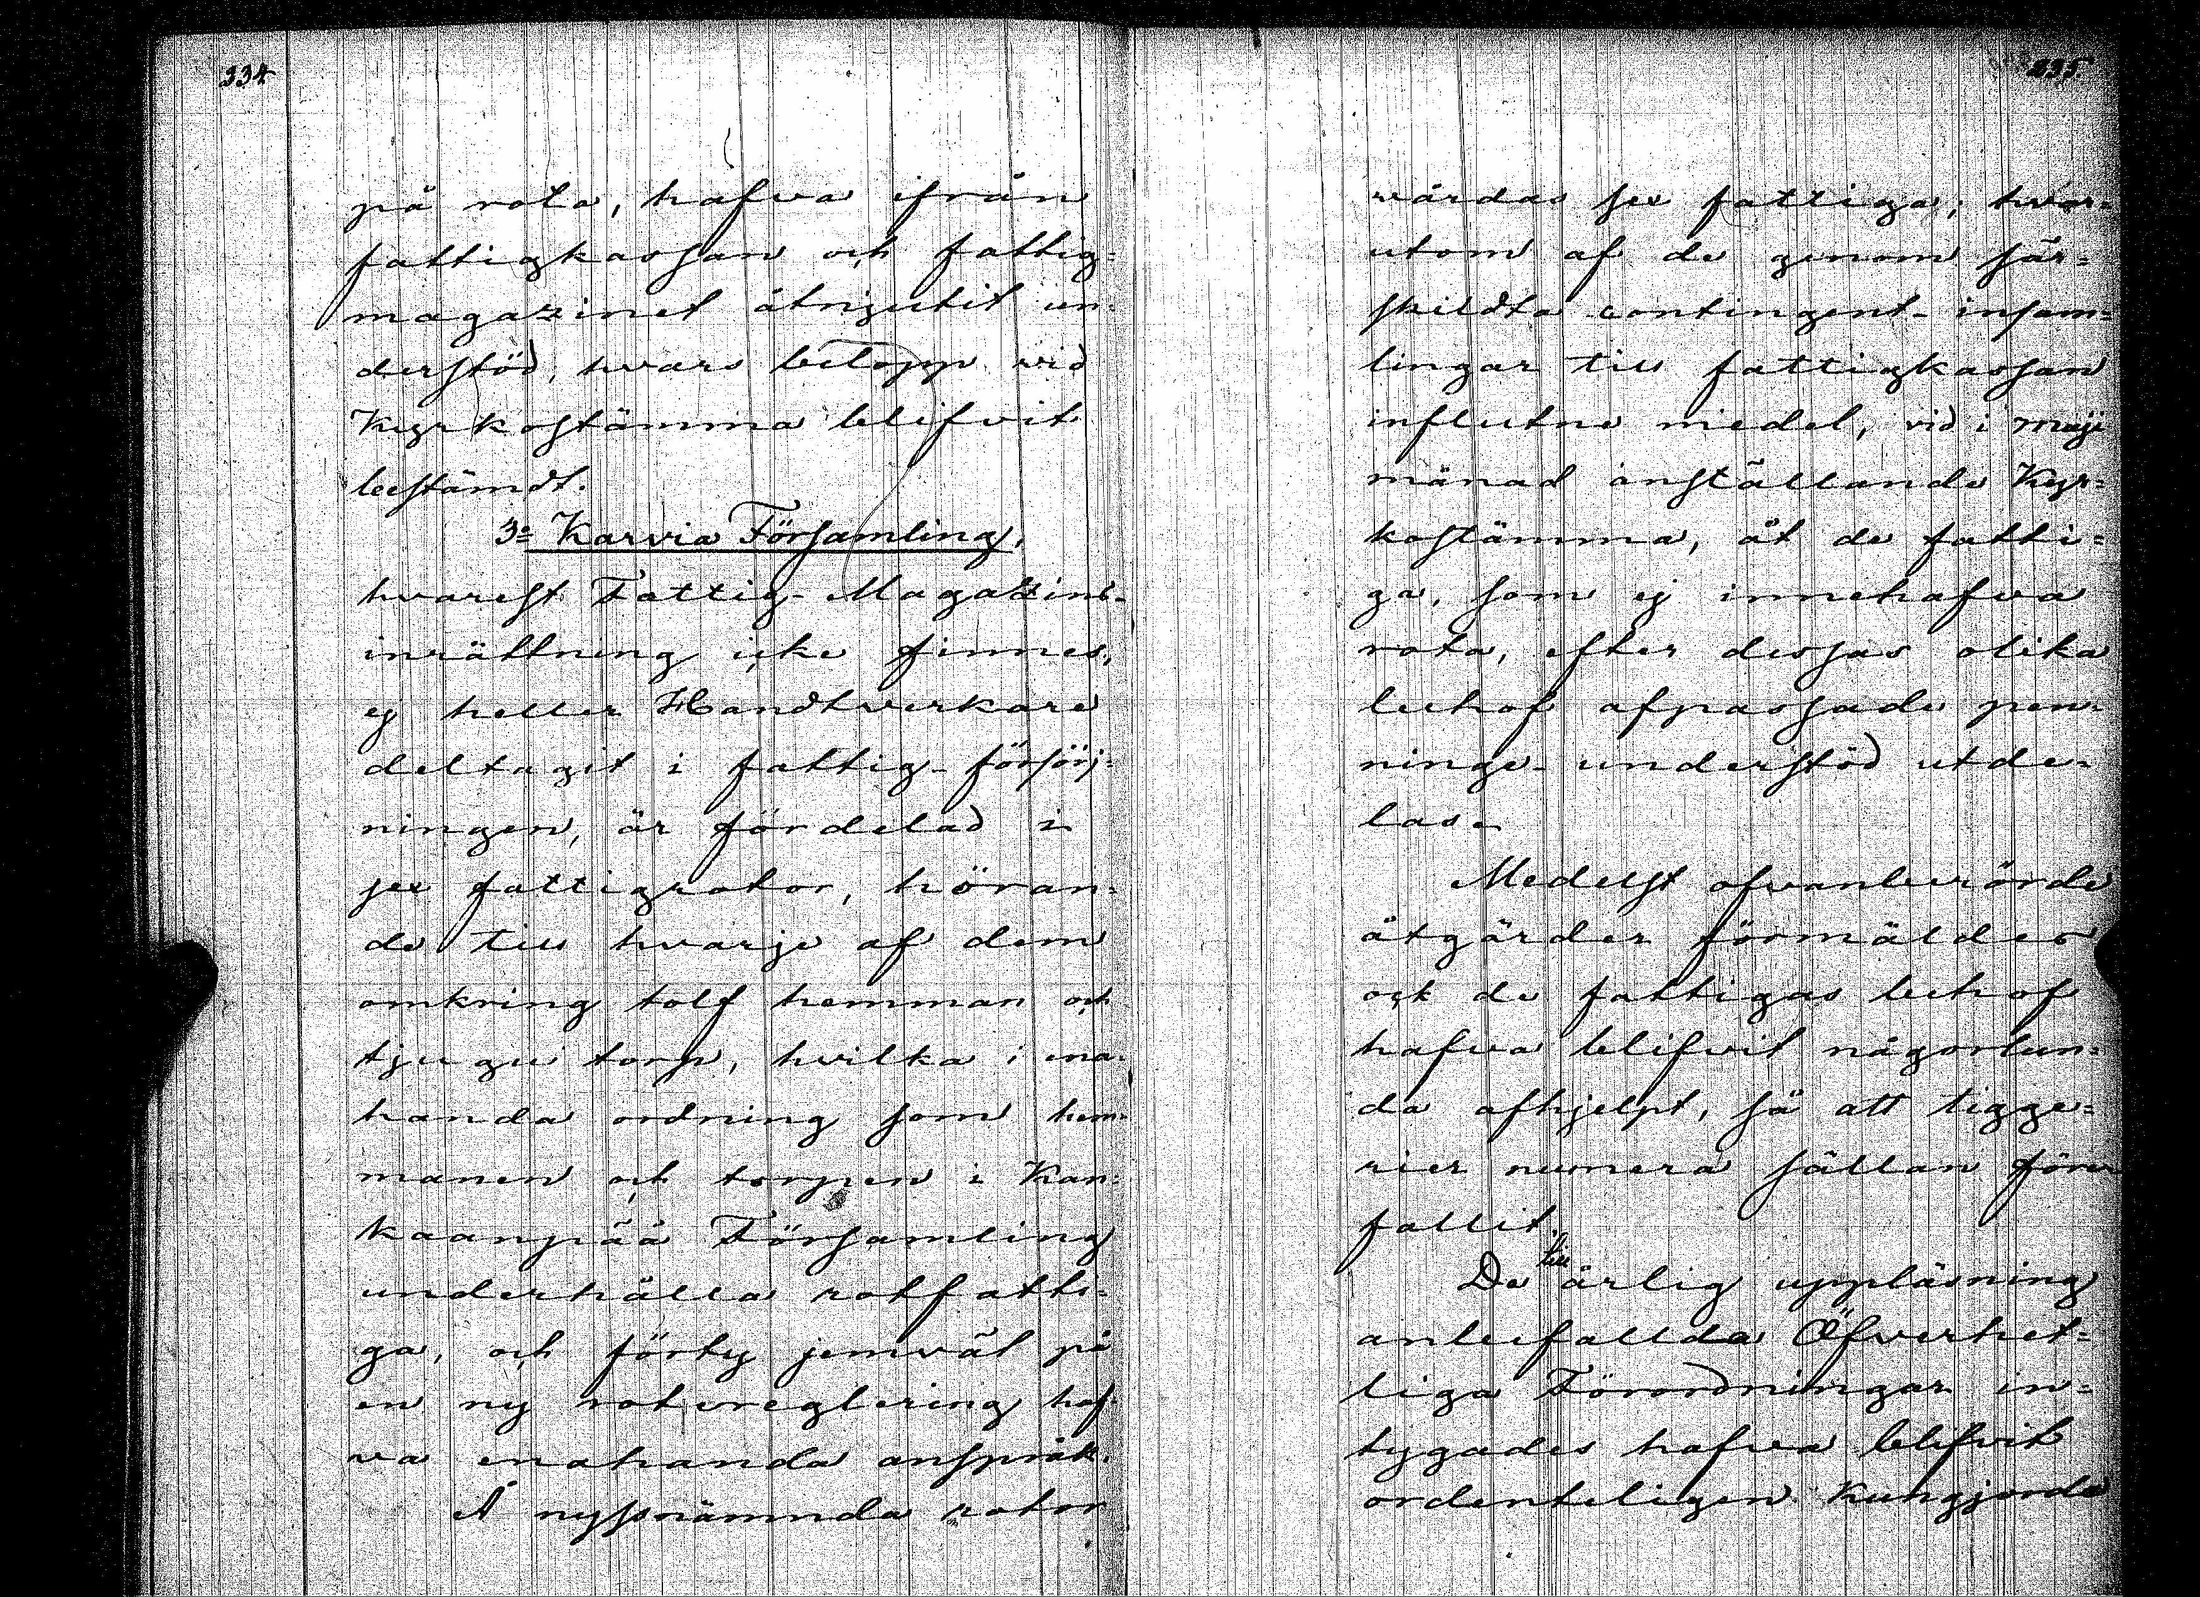 334
på rota, hafva ifrån
fattigkassan och fattig=
magazinet åtnjutit un=
derstöd, hvars belopp vid
Kyrkostämma blifvit
bestämdt.
3º Karvia Församling,
hvarest Fattig-Magazins-
inrättning icke finnes,
ej heller Handtverkare
deltagit i fattig-försörj=
ningen, är fördelad i
sex fattigrotor, höran=
de till hvarje af dem
omkring tolf hemman och
tjugu torp, hvilka i ena=
handa ordning som hem=
manen och torpen i Kan=
kaanpää Församling
underhålla rotfatti=
ga, och förty jemväl på
en ny rotereglering haf=
va enahanda anspråk.
Å nyssnämnda rotor
335
vårdas sex fattiga; hvar=
utom af de genom sär=
skildta contingent-insam=
lingar till fattigkassan
influtne medel, vid i maji
månad anställande Kyr=
kostämma, åt de fatti=
ga, som ej innehafva
rota, efter dessas olika
behof afpassade pen=
ninge-understöd utde=
las.
Medelst ofvanberörde
åtgärder förmäldes
ock de fattigas behof
hafva blifvit någorlun=
da afhjelpt, så att tigge=
rier numera sällan före
fallit.
De till årlig uppläsning
anbefallda Öfverhet=
liga Förordningar in=
tygades hafva blifvit
ordenteligen kungjorde